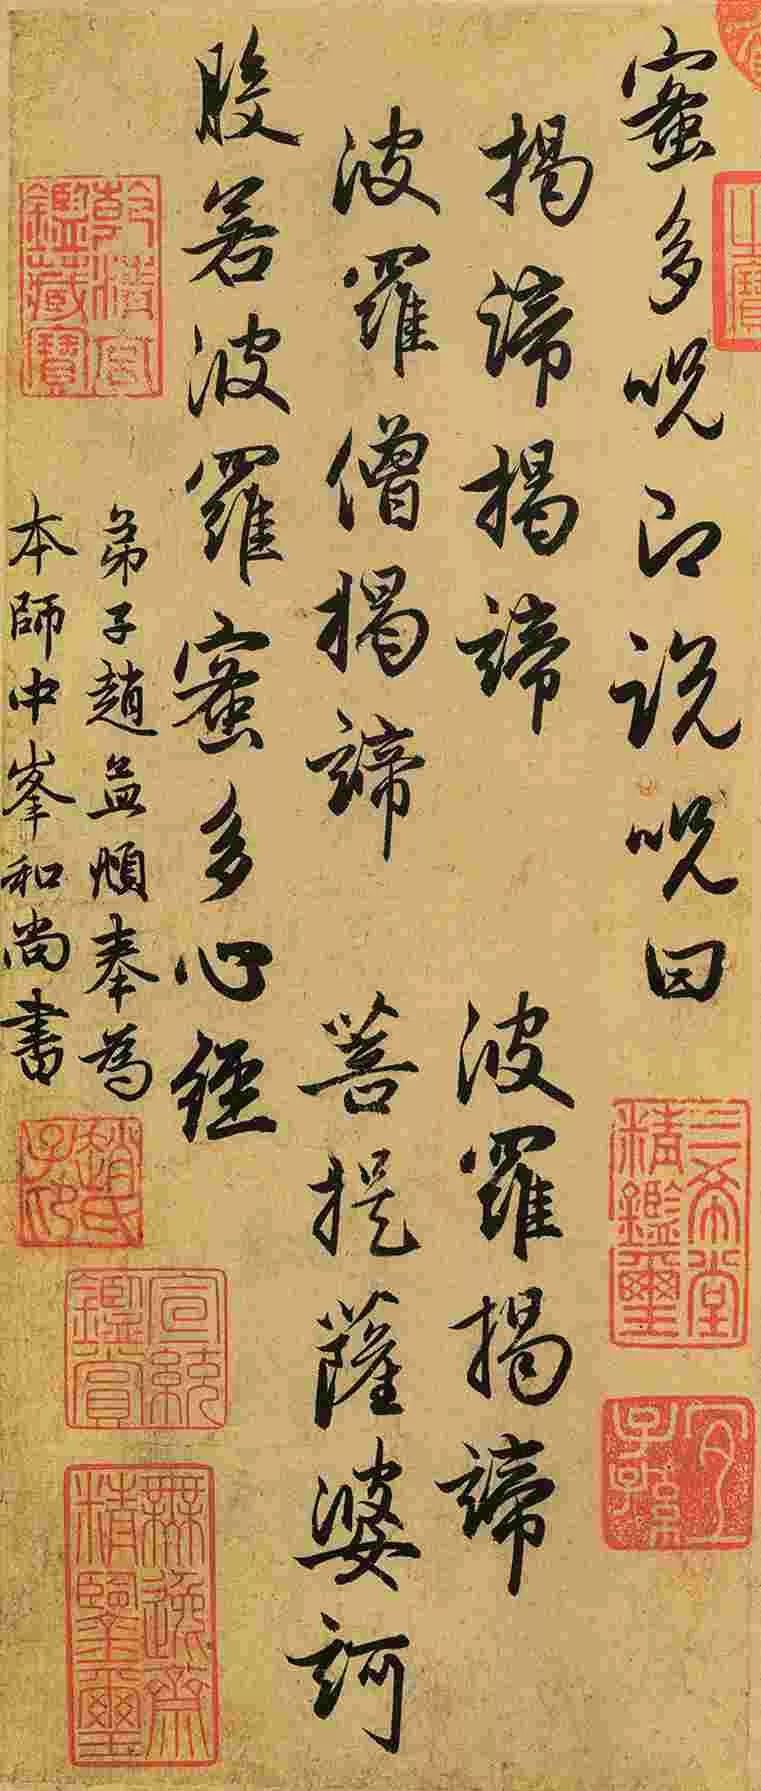 蜜多呪即说呪曰
揭諦揭諦　波羅揭諦
波羅僧揭諦　菩提薩婆訶
般若波羅蜜多心經
弟子趙孟頫奉為
本師中峯和尚書
三希堂精鑑璽
宜子孫
乾清宮鑑藏寶
趙氏子昂
宣統鑑賞
無逸齋精鑒璽